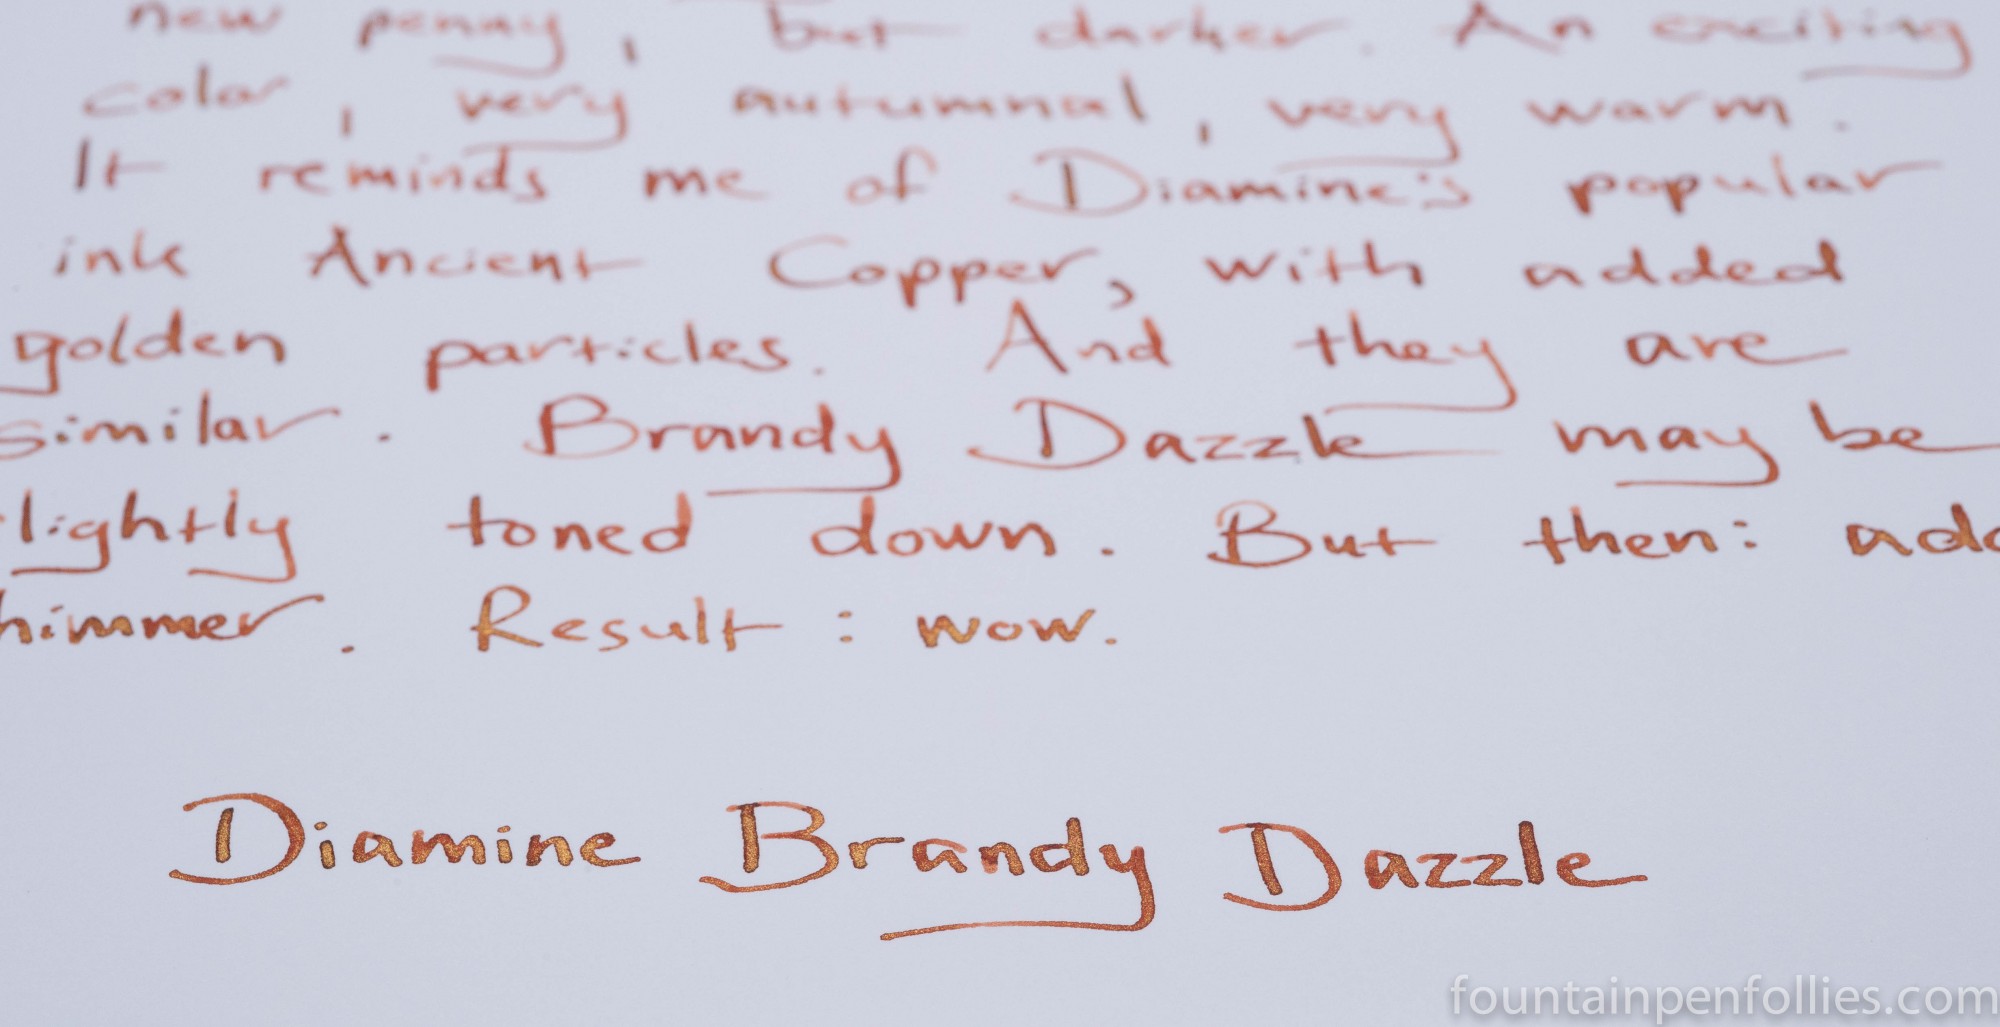 new penny, but darker. An exciting
color, very autumnal, very warm.
It reminds me of Diamine's popular
ink Ancient Copper, with added
golden particles. And they are
similar. Brandy Dazzle may be
lightly toned down. But then: add
himmer. Result: wow.
Diamine Brandy Dazzle
fountainpenfollies.com